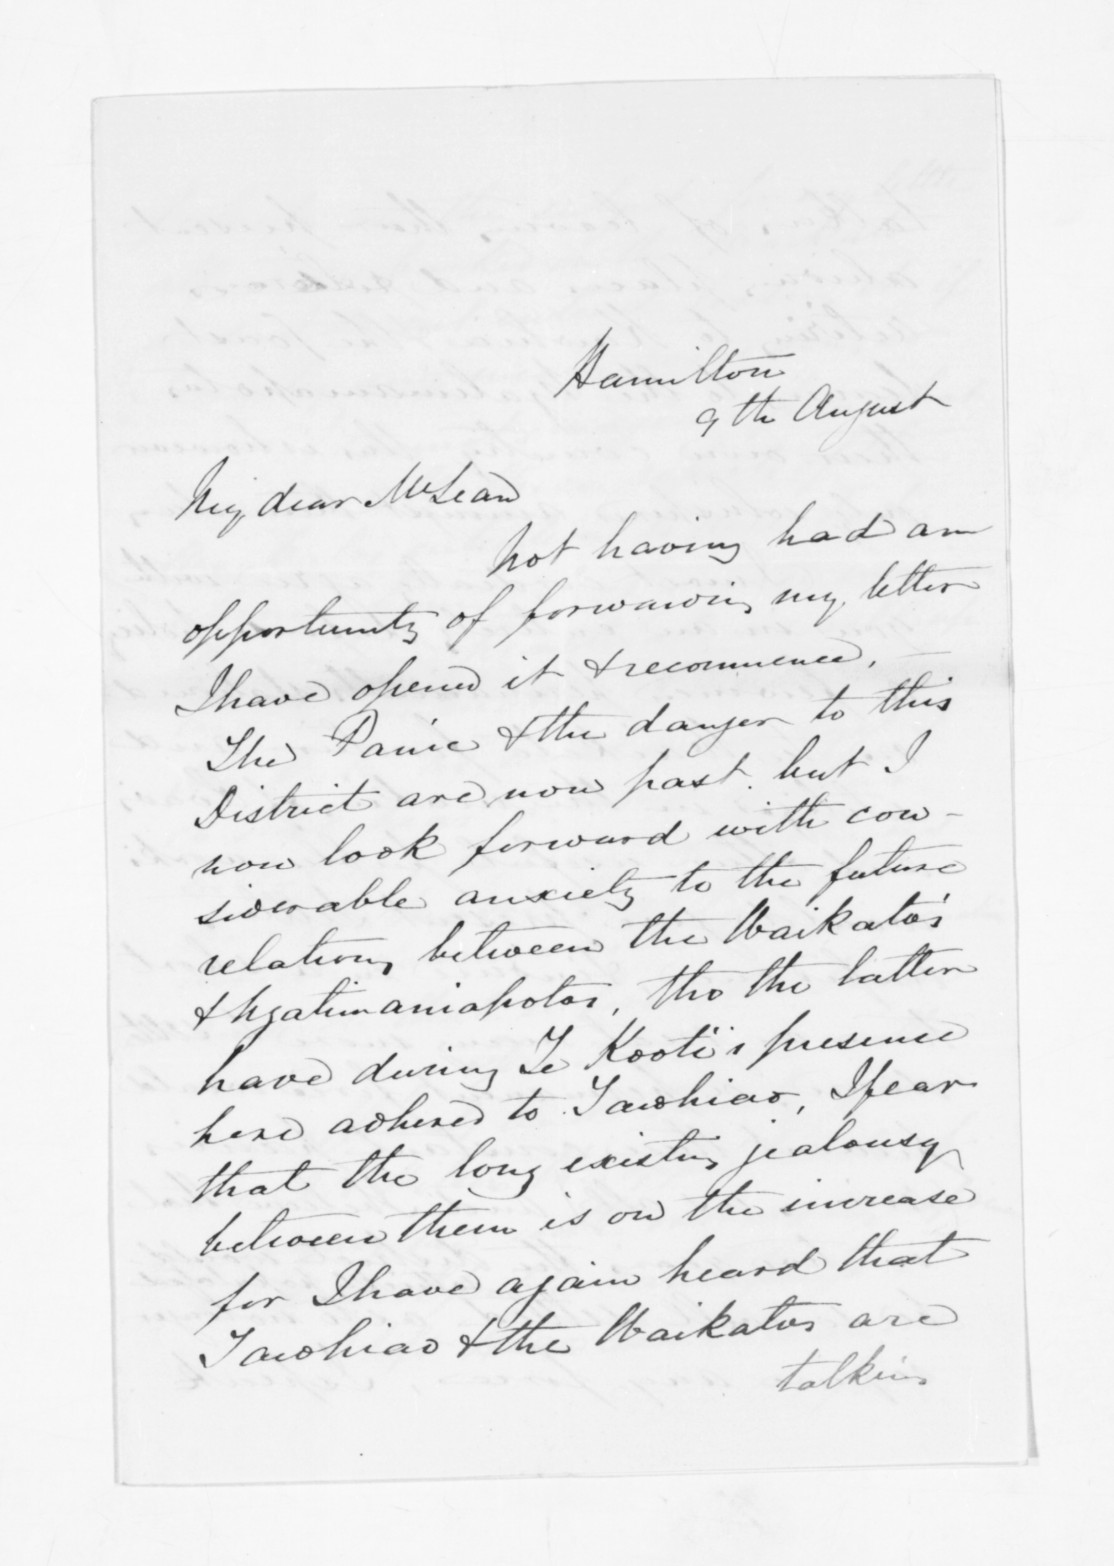 Hamilton
9th August
My dear McLean
Not having had an
opportunity of forwarding my letter
I have opened it & recommence. —
The Panic & the danger to this
District are now past. but I
now look forward with con-
siderable anxiety to the future
relations between the Waikato's
& Ngatimaniapotos, tho the latter
have during Te Kooti's presence
here adhered to Tawhiao, I fear
that the long existing jealousy
between them is on the increase
for I have again heard that
Tawhiao & the Waikatos are
talking